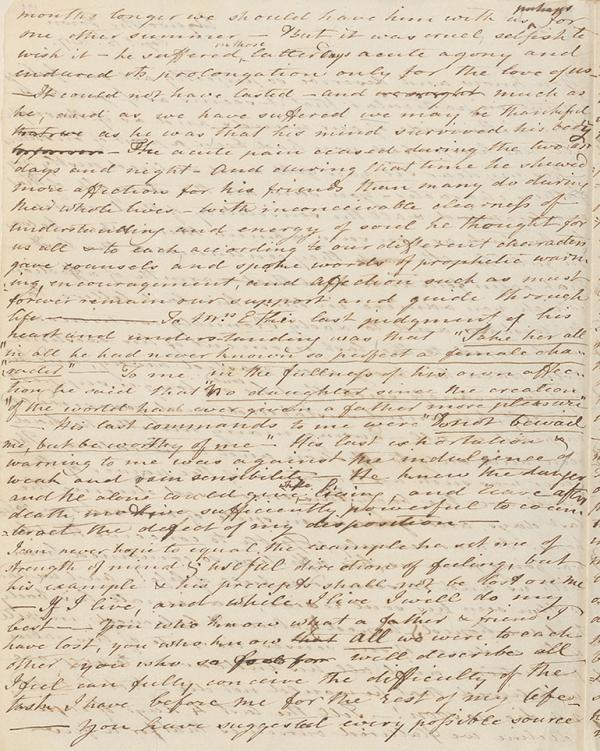 months longer we should have him with us perhaps for
one other summer – But it was cruel, selfish to
wish it – he suffered in those latter days acute agony and
endured its prolongation only for the love of us
– It could not have lasted – and we ought much as
he, and as we have suffered we may be thankful
that we as he was that his mind survived his body
– The acute pain ceased during the two last
days and night – And during that time he shewed
more affection for his friends than many do during
their whole lives – with inconceivable clearness of
understanding and energy of soul he thought for
us all & to each according to our different characters
gave counsels and spoke words of prophetic warn-
ing, encouragement, and affection such as must
forever remain our support and guide through
life ——— To Mrs E the last judgment of his
heart and understanding was that "Take her all
"in all he had never known so perfect a female cha-
"racter" – To me in the fullness of his own affec-
tion he said that "No daughter since the creation
"of the world had ever given a father more pleasure"
His last commands to me were "Do not bewail
me, but be worthy of me" His last exhortation &
warning to me was against the indulgence of
weak and vain sensibility He knew the danger
and he alone could give, living, and leave after
death motive sufficiently powerful to coun-
-teract the defect of my disposition –
I can never hope to equal the example he set me of
strength of mind & useful direction of feeling, but
his example & his precepts shall not be lost on me
– If I live, and while I live I will do my
best — You who know what a father & friend I
have lost, you who know that all we were to each
other & you who so well describe all
I feel can fully conceive the difficulty of the
task I have before me for the rest of my life –
— You have suggested every possible source